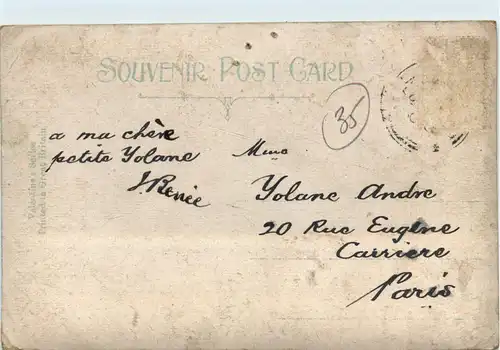 SOUVENIR POST CARD
35
a ma chère
petite Yolane
Renée
Mme
Yolane Andre
20 Rue Eugène
Carriere
Paris
Valentine's Series
Printed in Great Britain